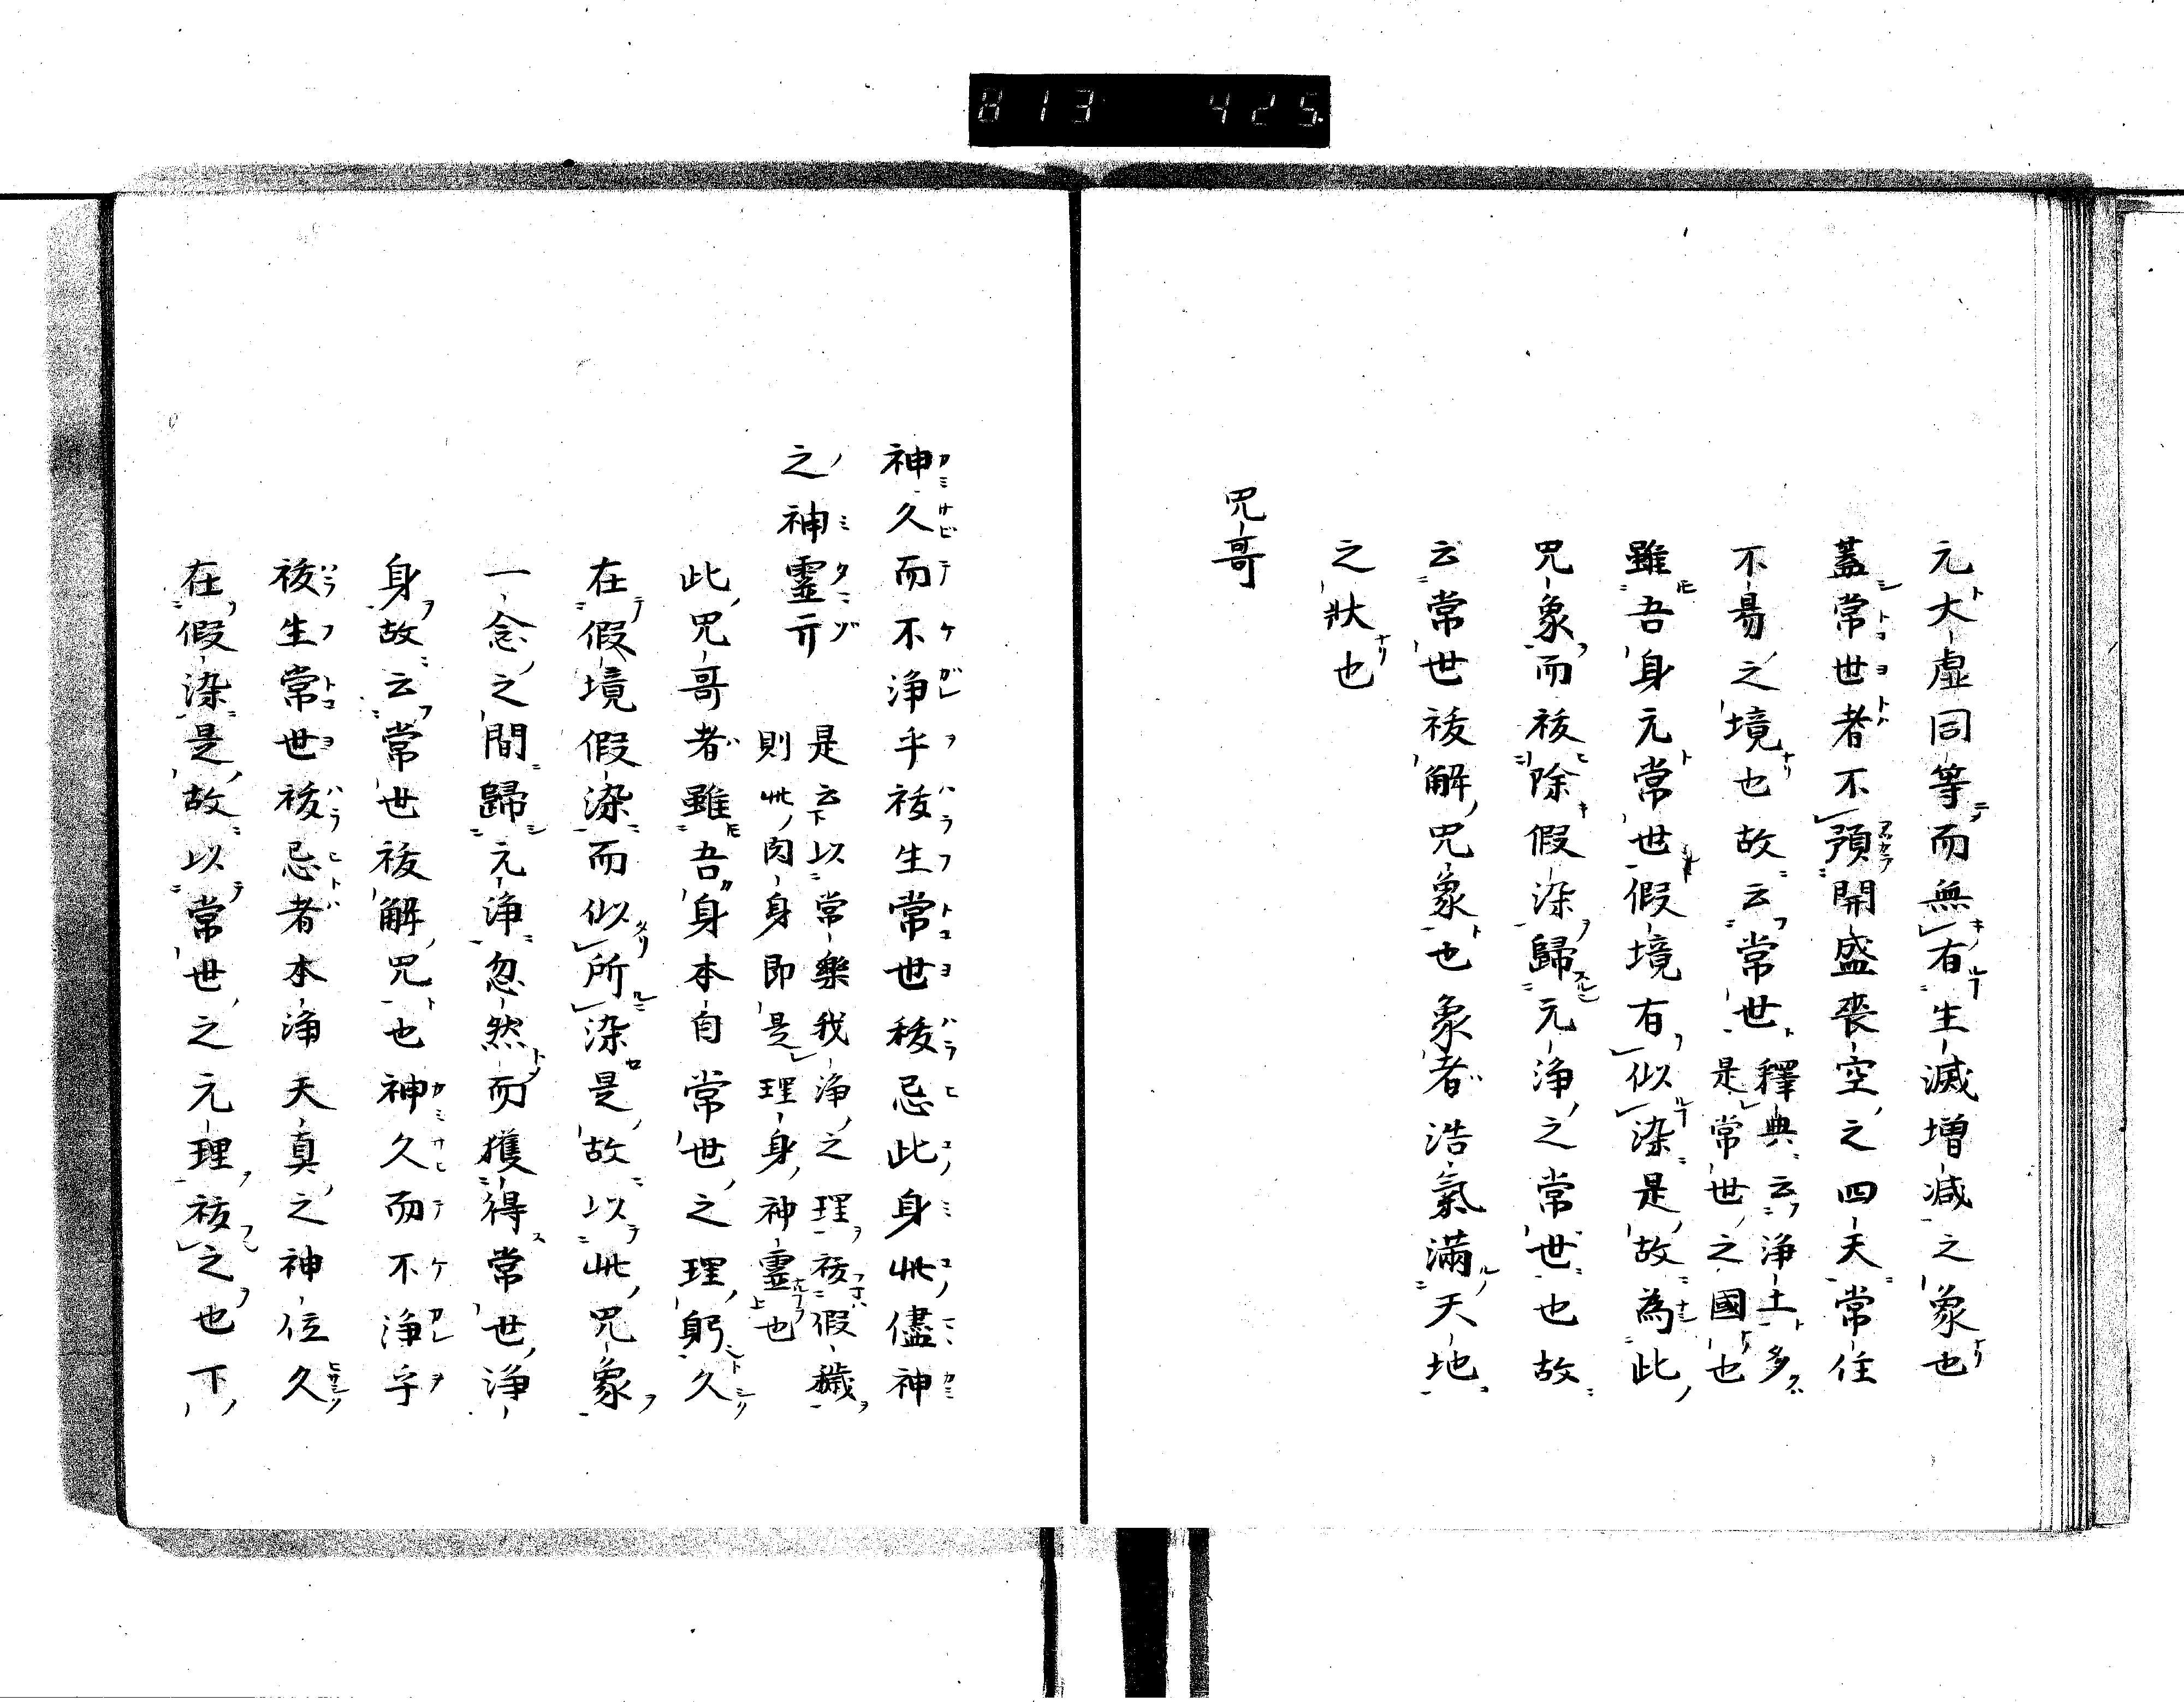 813 425
元大虚同等而無有生滅増減之象也
蓋常世者不預開盛喪空之四天常住
不易之境也故云常世
釋典云浄土多
是常世之國也
雖吾身元常世假境有似染是故為此
咒象而祓除假染歸元浄之常世也故
云常世祓解咒象也象者浩氣滿天地
之狀也
咒哥
神久而不浄乎祓生常世祓忌此身此儘神
之神靈亓
是云以常樂我浄之理祓假穢
則此肉身即是理身神靈也
此咒哥者雖吾身本自常世之理躬久
在假境假染而似所染是故以此咒象
一念之間歸元浄忽然而獲得常世浄
身故云常世祓解咒也神久而不浄乎
祓生常世祓忌者本浄天真之神位久
在假染是故以常世之元理祓之也下